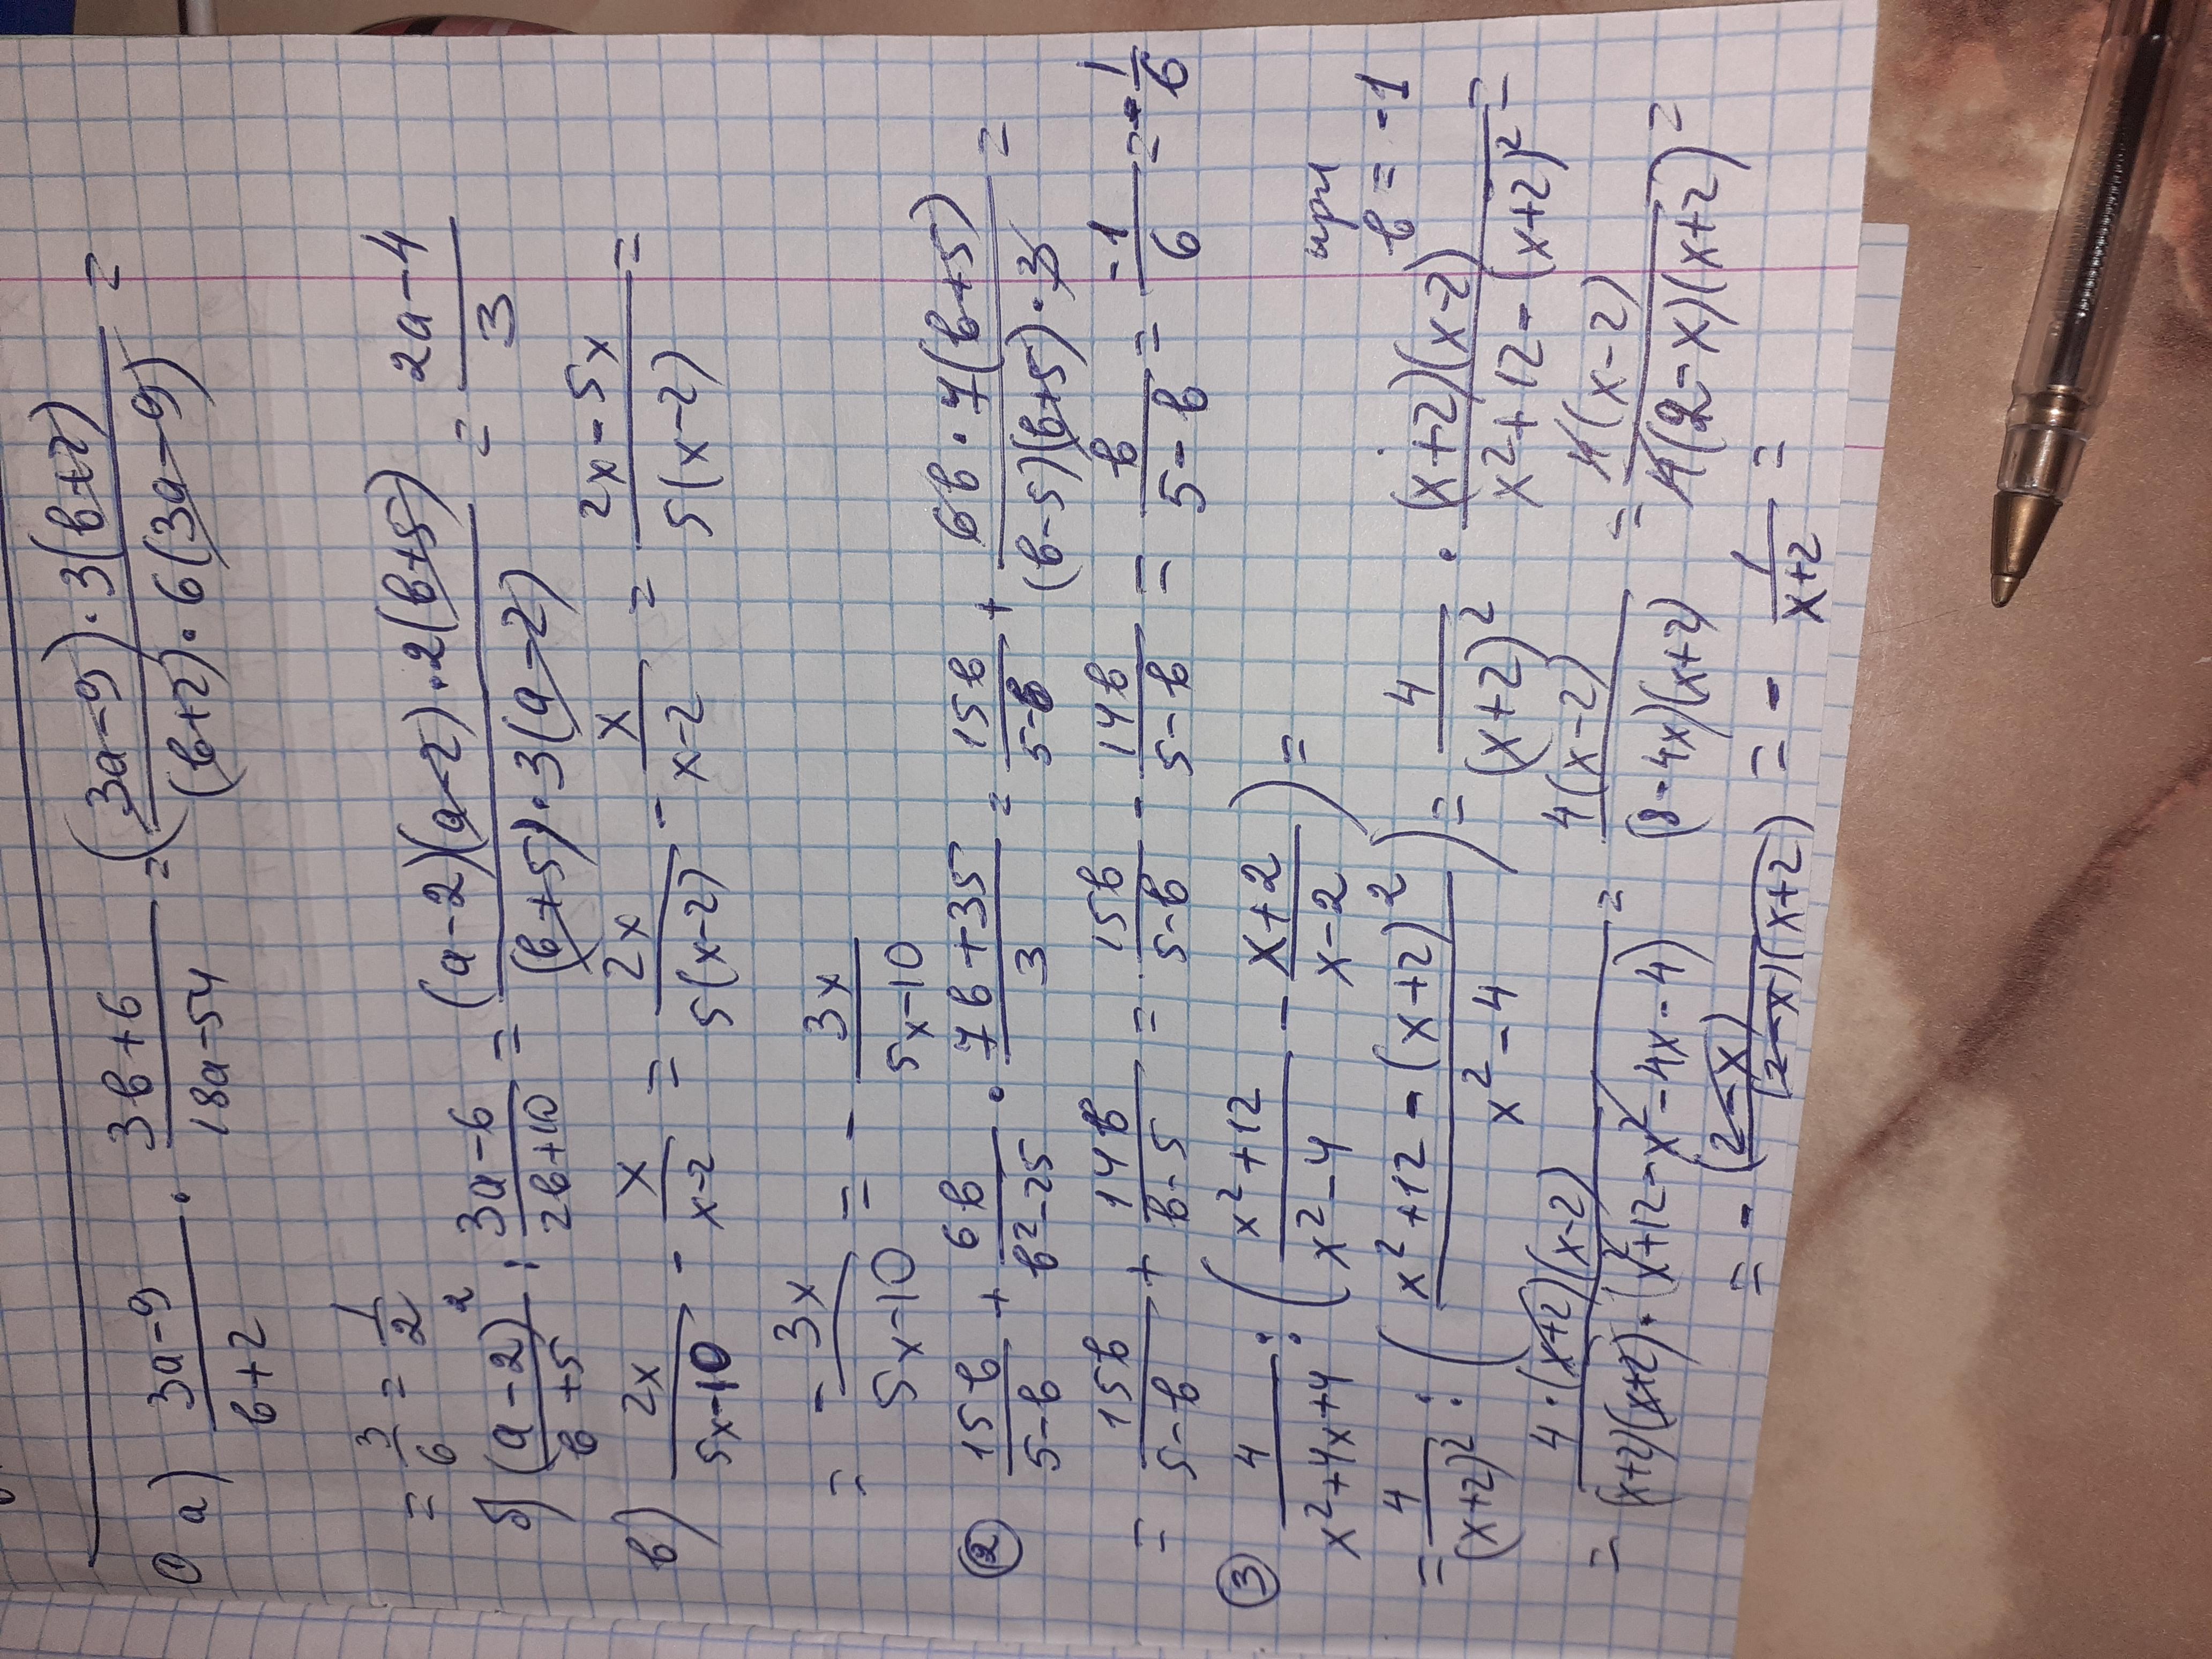 ① а) (3a-9)/(b+2) · (3b+6)/(18a-54) = ((3a-9)·3(b+2))/((b+2)·6(3a-9)) =
= 3/6 = 1/2
б) (a-2)²/(b+5) : (3a-6)/(2b+10) = ((a-2)(a-2)·2(b+5))/((b+5)·3(a-2)) = (2a-4)/3
в) 2x/(5x-10) - x/(x-2) = 2x/(5(x-2)) - x/(x-2) = (2x-5x)/(5(x-2)) =
= -3x/(5x-10) = - 3x/(5x-10)
② 15b/(5-b) + 6b/(b²-25) · (7b+35)/3 = 15b/(5-b) + (6b·7(b+5))/((b-5)(b+5)·3) =
= 15b/(5-b) + 14b/(b-5) = 15b/(5-b) - 14b/(5-b) = b/(5-b) = -1/6 = -1/6
при
b = -1
③ 4/(x²+4x+4) : ((x²+12)/(x²-4) - (x+2)/(x-2)) =
= 4/(x+2)² : ((x²+12-(x+2)²)/(x²-4)) = 4/(x+2)² · ((x+2)(x-2))/(x²+12-(x+2)²) =
= (4·(x+2)(x-2))/((x+2)(x+2)·(x²+12-x²-4x-4)) = 4(x-2)/((8-4x)(x+2)) = 4(x-2)/(4(2-x)(x+2)) =
= - (2-x)/((2-x)(x+2)) = - 1/(x+2) =